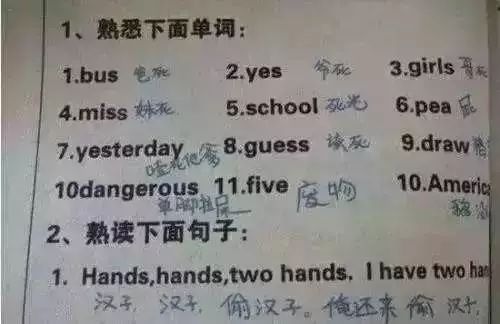 1、熟悉下面单词：
1.bus 死 2.yes 爷死 3.girls 哥死
4.miss 妹死 5.school 死光 6.pea 屁
7.yesterday 8.guess 该死 9.draw
10dangerous 11.five 废物 10.Americ
单脚拉屎
2、熟读下面句子：
1. Hands,hands,two hands. I have two han
汉子, 汉子, 偷汉子。俺还来偷汉子,